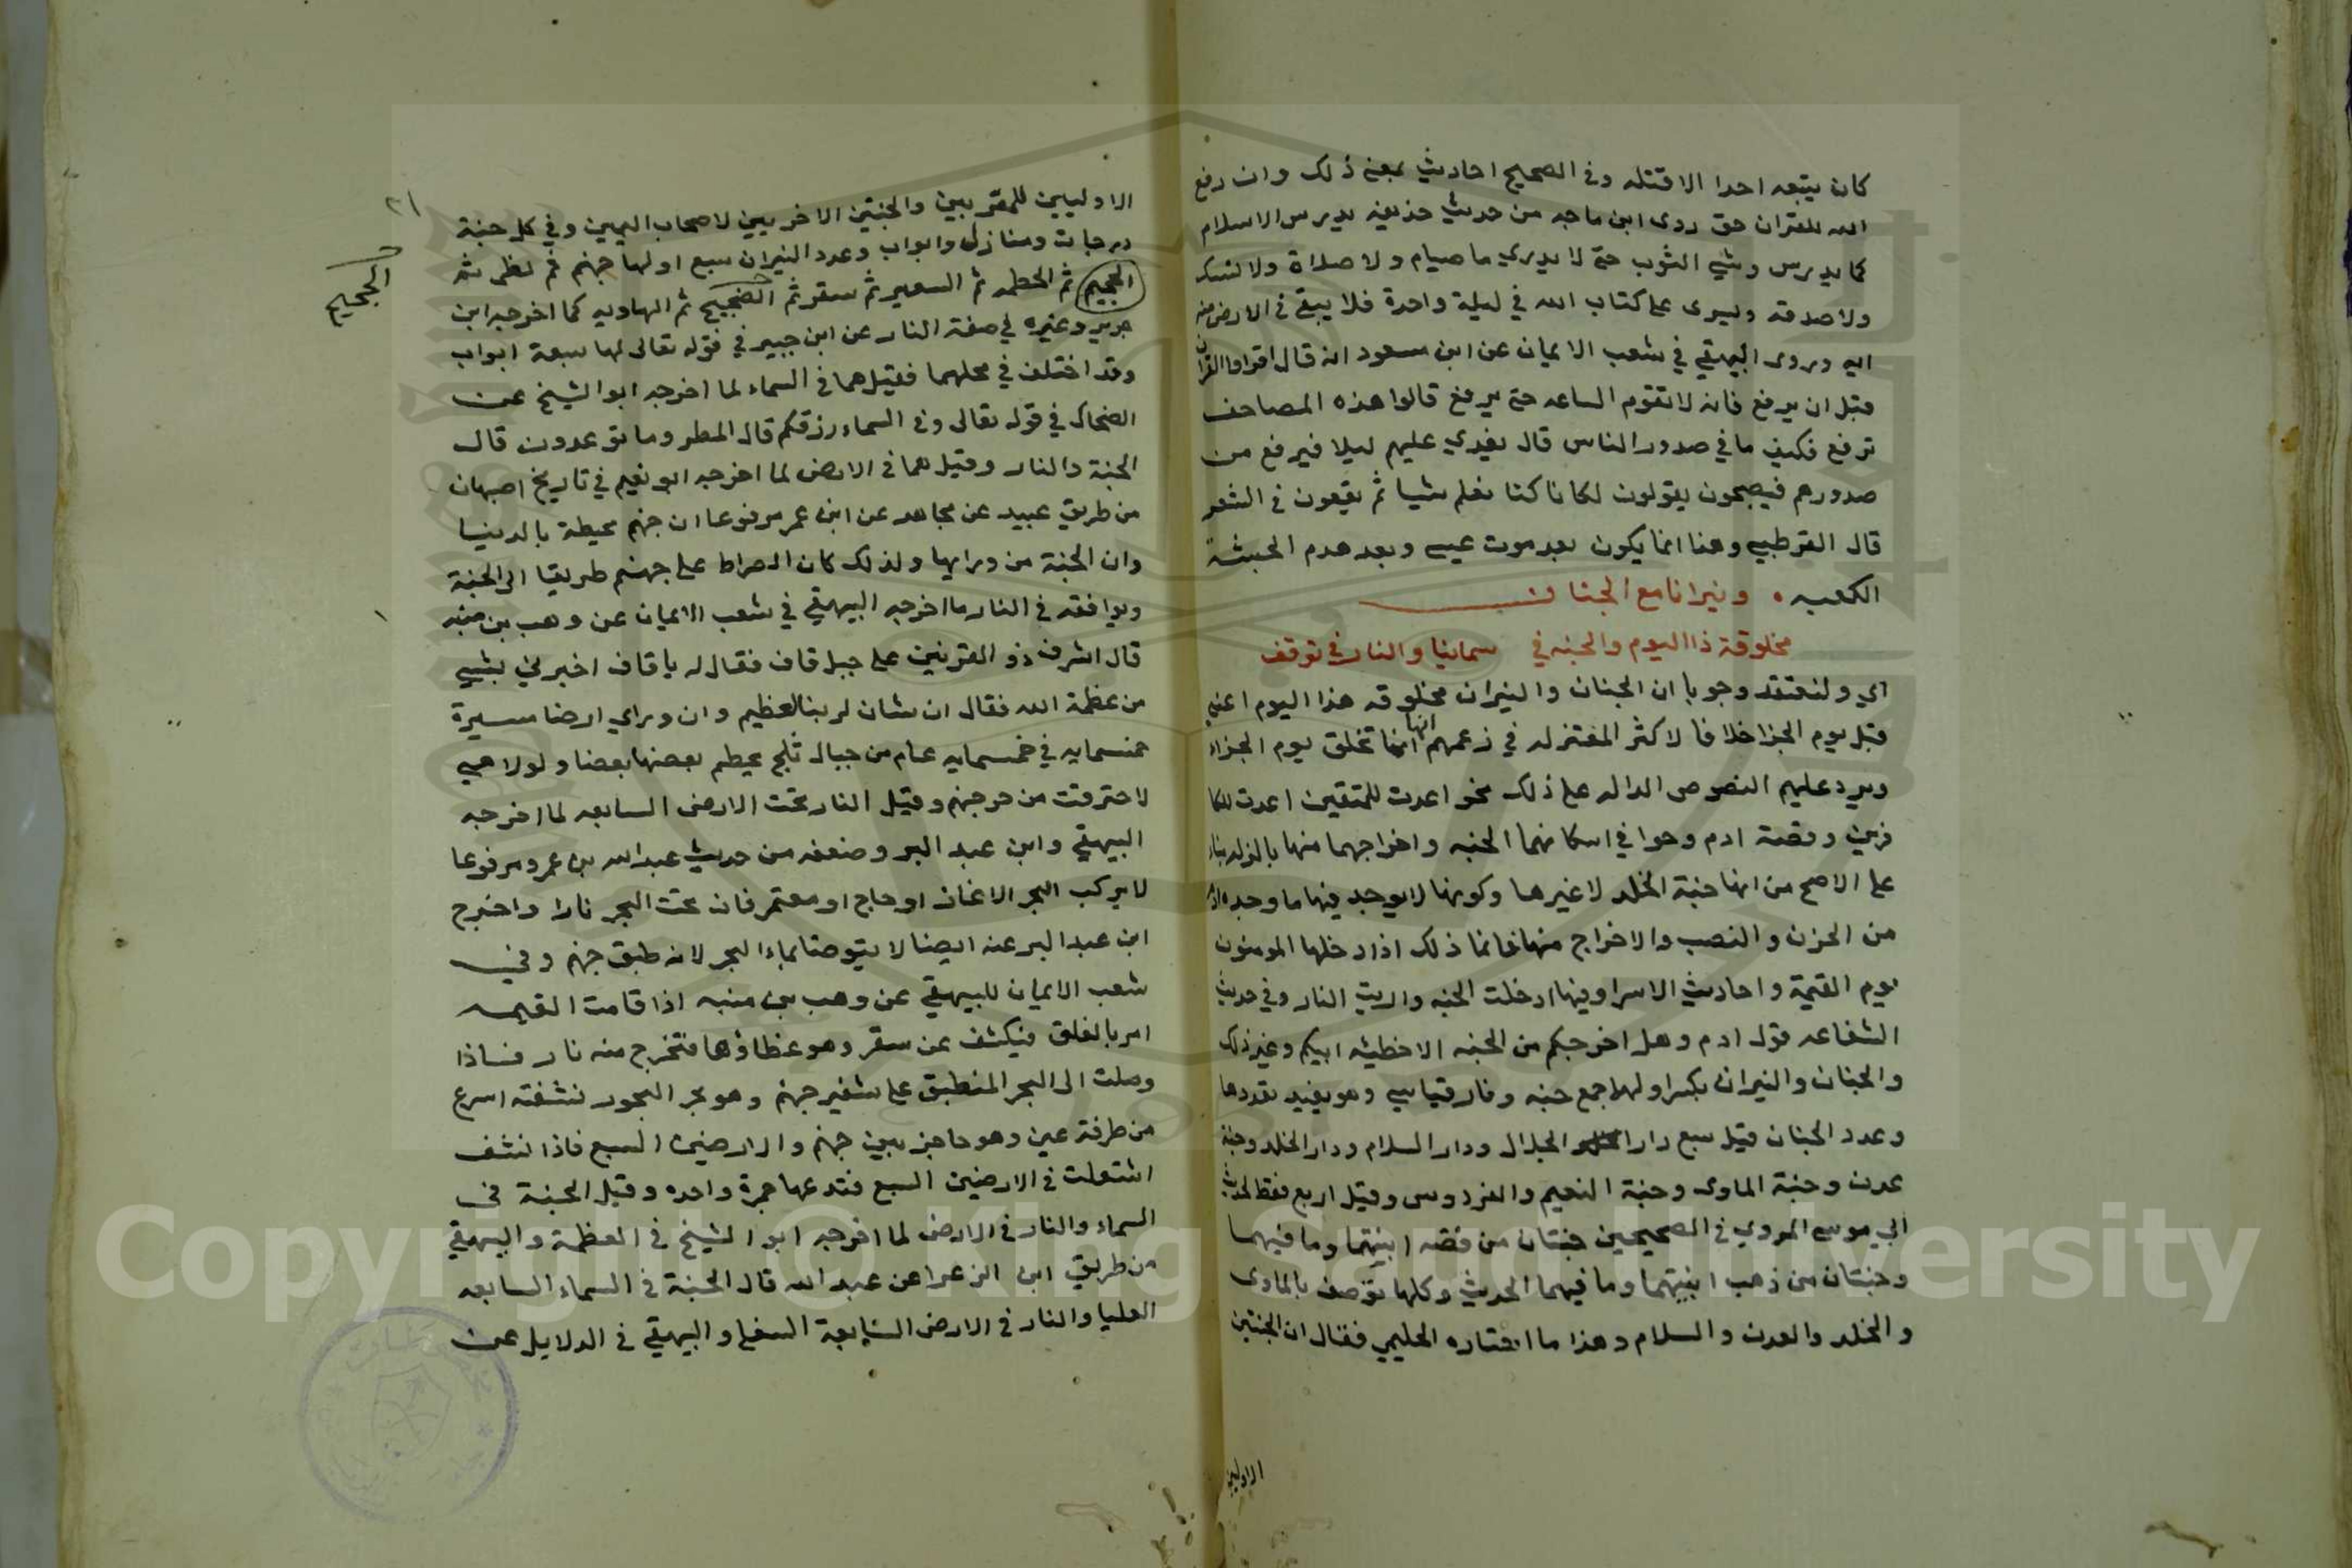 كان يتبعه احدا الا قتله وفي الصحيح احاديث بمعنى ذلك وان رفع
الله للقران حق روى ابن ماجه من حديث حذيفه يدرس الاسلام
كما يدرس وشي الثوب حتى لا يدري ما صيام ولا صلاة ولا نسك
ولا صدقه ويسرى على كتاب الله في ليلة واحدة فلا يبقى في الارض منه
ايه وروى البيهقي في شعب الايمان عن ابن مسعود انه قال اقراوا القران
قبل ان يرفع فانه لا تقوم الساعه حتى يرفع قالوا هذه المصاحف
ترفع فكيف ما في صدور الناس قال يغدي عليهم ليلا فيرفع من
صدورهم فيصبحون يقولون لكانا كنا نعلم شيا ثم يقعون في الشعر
قال القرطبي وهنا انما يكون بعد موت عيسى وبعد هدم الحبشة
الكعبه . ونيرانا مع الجنان
مخلوقة ذا اليوم والجنه في سمائنا والنار في توقف
اي ولنعتقد وجوبا ان الجنان والنيران مخلوقه هذا اليوم اعني
قبل يوم الجزا خلافا لاكثر المعتزله في زعمهم انها انما تخلق يوم الجزاء
ويرد عليهم النصوص الداله على ذلك نحو اعدت للمتقين اعدت للكا
فرين وقصة ادم وحوا في اسكانهما الجنه واخراجهما منها بالزله بناء
على الاصح من انها جنة الخلد لا غيرها وكونها لا يوجد فيها ما وجده ادم
من الحزن والنصب والاخراج منها فانما ذلك اذا دخلها المومنون
يوم القيمة واحاديث الاسرا وفيها ادخلت الجنه واريت النار وفي حديث
الشفاعه قول ادم وهل اخرجكم من الجنه الا خطيئه ابيكم وغير ذلك
والجنان والنيران بكسر اولهما جمع جنه ونار قياسي وهو يفيد تعددها
وعدد الجنان قيل سبع دار الجلال ودار السلام ودار الخلد وجنة
عدن وجنة الماوى وجنة النعيم والفردوس وقيل اربع فقط لحديث
ابي موسى المروي في الصحيحين جنتان من فضه انيتهما وما فيهما
وجنتان من ذهب انيتهما وما فيهما الحديث وكلها توصف بالماوى
والخلد والعدن والسلام وهذا ما اختاره الحليمي فقال ان الجنتين
الاوليين
٢١
الاوليين للمقربين والجنتين الاخريين لاصحاب اليمين وفي كل جنة
درجات ومنازل وابواب وعدد النيران سبع اولها جهنم ثم لظى ثم
الجحيم ثم الحطمه ثم السعير ثم سقر ثم الجحيم ثم الهاويه كما اخرجه ابن
الجحيم
جرير وغيره في صفة النار عن ابن جبير في قوله تعالى لها سبعة ابواب
وقد اختلف في محلهما فقيل هما في السماء لما اخرجه ابو الشيخ عن
الضحاك في قوله تعالى وفي السماء رزقكم قال المطر وما توعدون قال
الجنة والنار وقيل هما في الارض لما اخرجه ابو نعيم في تاريخ اصبهان
من طريق عبيد عن مجاهد عن ابن عمر مرفوعا ان جهنم محيطة بالدنيا
وان الجنة من ورايها ولذلك كان الصراط على جهنم طريقا الى الجنة
ويوافقه في النار ما اخرجه البيهقي في شعب الايمان عن وهب بن منبه
قال اشرف ذو القرنين على جبل قاف فقال له يا قاف اخبرني بشيي
من عظمة الله فقال ان شان لربنا لعظيم وان وراي ارضا مسيرة
خمسمايه في خمسمايه عام من جبال ثلج يحطم بعضها بعضا ولولا هي
لاحترقت من حر جهنم وقيل النار تحت الارض السابعه لما اخرجه
البيهقي وابن عبد البر وضعفه من حديث عبد الله بن عمرو مرفوعا
لا يركب البحر الا غاز او حاج او معتمر فان تحت البحر نارا واخرج
ابن عبد البر عنه ايضا لا يتوضا بماء البحر لانه طبق جهنم وفي
شعب الايمان للبيهقي عن وهب بن منبه اذا قامت القيمه
امر بالفلق فيكشف عن سقر وهو غطاؤها فتخرج منه نار فاذا
وصلت الى البحر المنطبق على شفير جهنم وهو بحر البحور نشفته اسرع
من طرفة عين وهو حاجز بين جهنم والارضين السبع فاذا نشف
اشتعلت في الارضين السبع فتدعها جمرة واحده وقيل الجنة في
السماء والنار في الارض لما اخرجه ابو الشيخ في العظمة والبيهقي
من طريق ابن الزعرا عن عبد الله قال الجنة في السماء السابعه
العليا والنار في الارض السابعة السفلى والبيهقي في الدلايل عن
Copyright © King Saud University